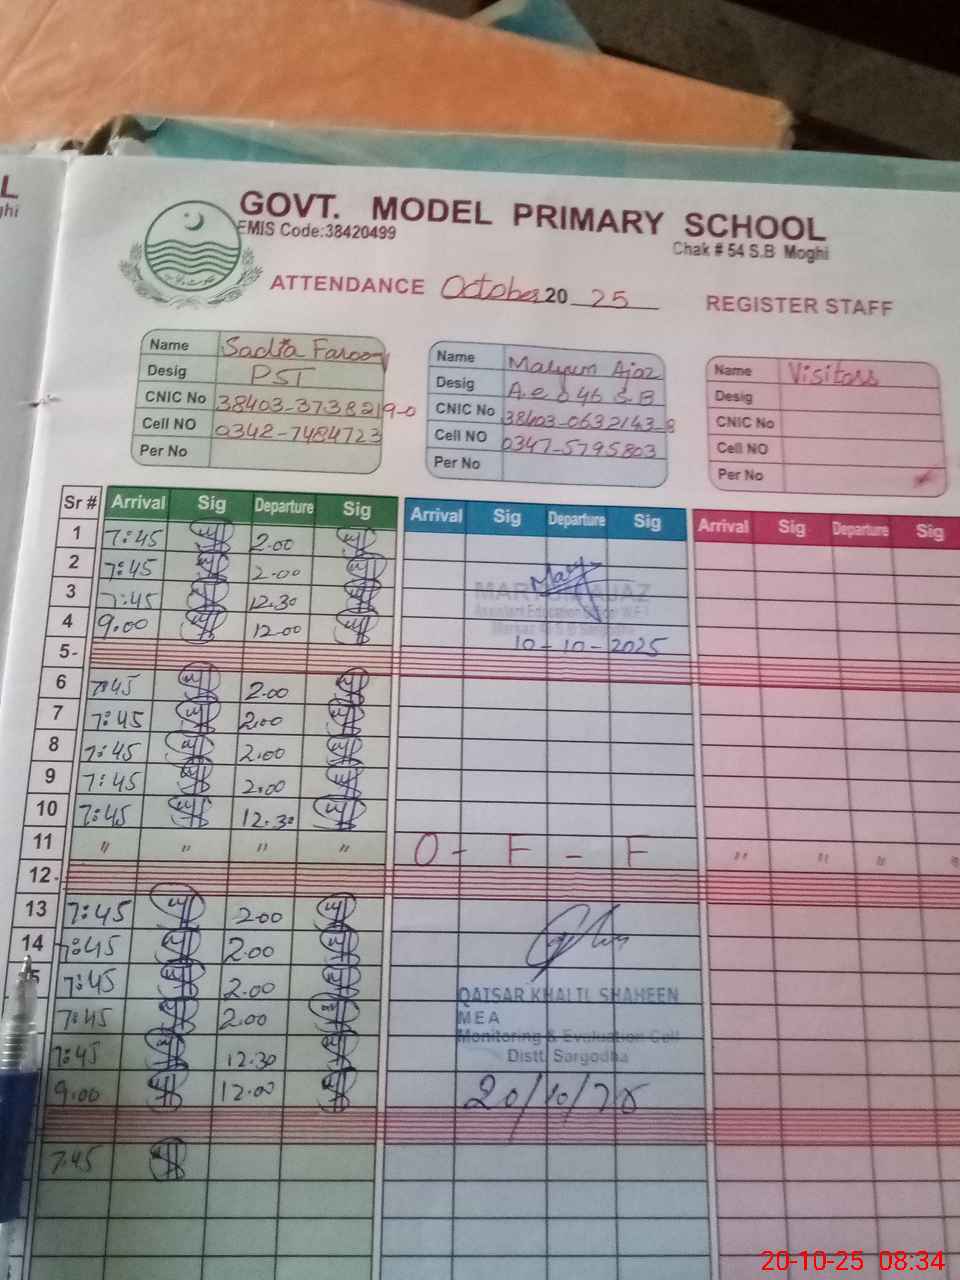 GOVT. MODEL PRIMARY SCHOOL
EMIS Code:38420499
Chak # 54 S.B Moghi
ATTENDANCE October 20 25 REGISTER STAFF
Name Sadia Farooq
Desig PST
CNIC No 38403-3738219-0
Cell NO 0348-7484723
Per No
Name Maryum Ajaz
Desig A.e.o 46 S.B
CNIC No 38403-0632143-8
Cell NO 0347-5795803
Per No
Name Visitors
Desig
CNIC No
Cell NO
Per No
Sr # Arrival Sig Departure Sig Arrival Sig Departure Sig Arrival Sig Departure Sig
1 7:45 2.00
2 7:45 2.00
3 7:45 12.30
MARYUM AJAZ
4 9.00 12.00
10-10-2025
5
6 7:45 2.00
7 7:45 2.00
8 7:45 2.00
9 7:45 2.00
10 7:45 12.30
11 " " " " O - F - F " " " "
12
13 7:45 2.00
14 7:45 2.00
7:45 2.00
QAISAR KHALIL SHAHEEN
7:45 2.00
MEA
Monitoring & Evaluation Cell
7:45 12.30
Distt. Sargodha
9.00 12.00
20/10/25
7:45
20-10-25 08:34